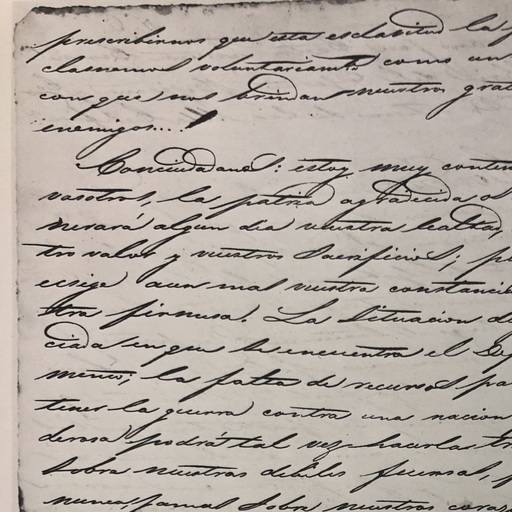 prescribirnos que esta esclabitud la
clamemos voluntariamte como un
con que nos brindan nuestros grat
enemigos...!
Conciudadanos: estoy muy conten
vosotros, la patria agradecida os
nerará algun dia vuestra lealtad,
tro valor y vuestros Sacrificios; p
ecsige aun mas vuestra constancia
tra firmesa. La Situacion de
ciada en que se encuentra el
mento; la falta de recursos pa
tener la guerra contra una nacion
derosa podrá tal vez hacerla tr
Sobre nuestras debiles fuersas, p
nunca, jamas Sobre nuestros coras